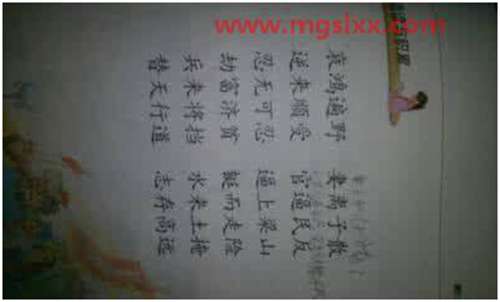 www.mgslxx.com
积累
哀鸿遍野 妻离子散
逆来顺受 官逼民反
忍无可忍 逼上梁山
劫富济贫 铤而走险
兵来将挡 水来土掩
替天行道 志存高远